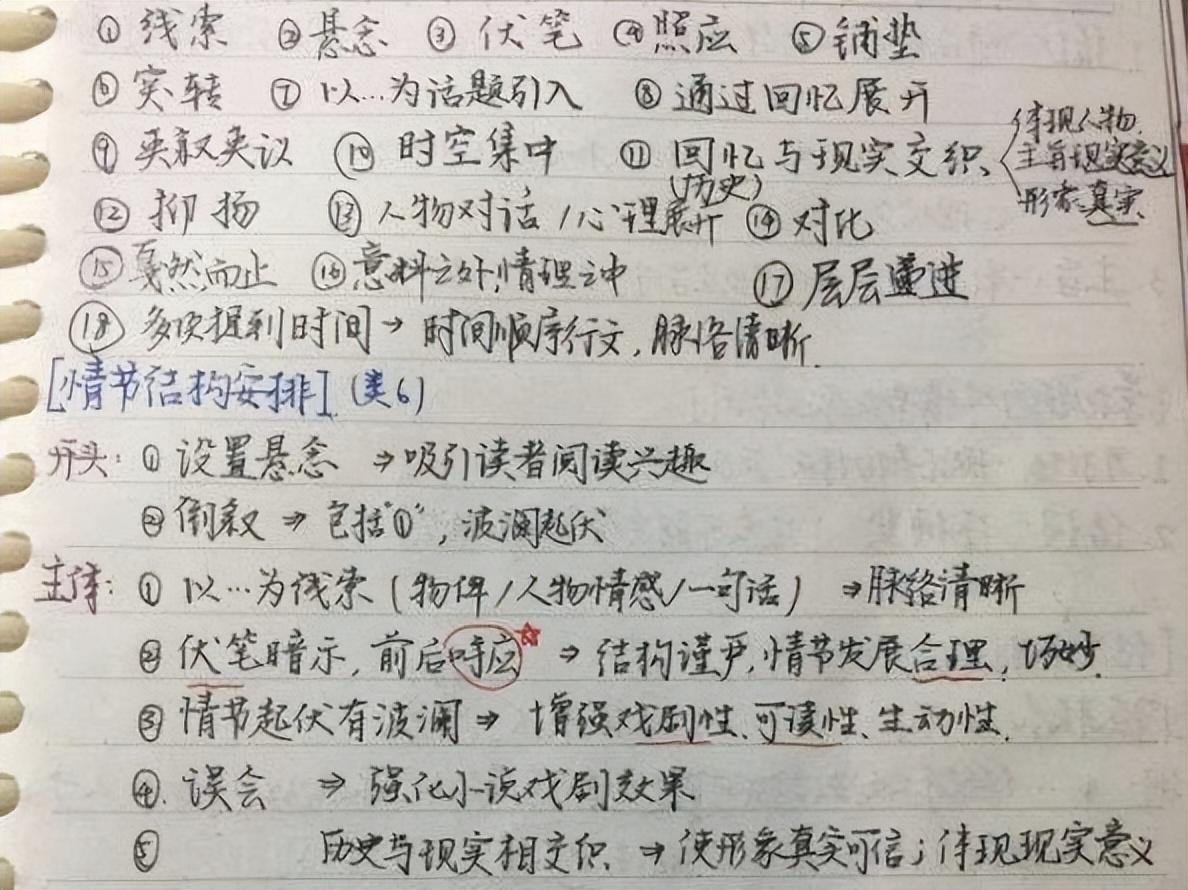 ① 线索 ② 悬念 ③ 伏笔 ④ 照应 ⑤ 铺垫
⑥ 突转 ⑦ 以…为话题引入 ⑧ 通过回忆展开
⑨ 夹叙夹议 ⑩ 时空集中 ⑪ 回忆与现实交织
(历史)
体现人物.
主旨现实意义
形象真实
⑫ 抑扬 ⑬ 人物对话/心理展开 ⑭ 对比
⑮ 戛然而止 ⑯ 意料之外,情理之中 ⑰ 层层递进
⑱ 多次提到时间→时间顺序行文,脉络清晰.
[情节结构安排](类6)
开头:① 设置悬念 ⇒吸引读者阅读兴趣
② 倒叙 ⇒ 包括“①”,波澜起伏
主体:① 以…为线索(物件/人物情感/一句话) ⇒脉络清晰
② 伏笔暗示,前后呼应 ⇒ 结构谨严,情节发展合理,巧妙.
③ 情节起伏有波澜⇒ 增强戏剧性、可读性、生动性.
④. 误会 ⇒ 强化小说戏剧效果
⑤ 历史与现实相交织 ⇒ 使形象真实可信;体现现实意义